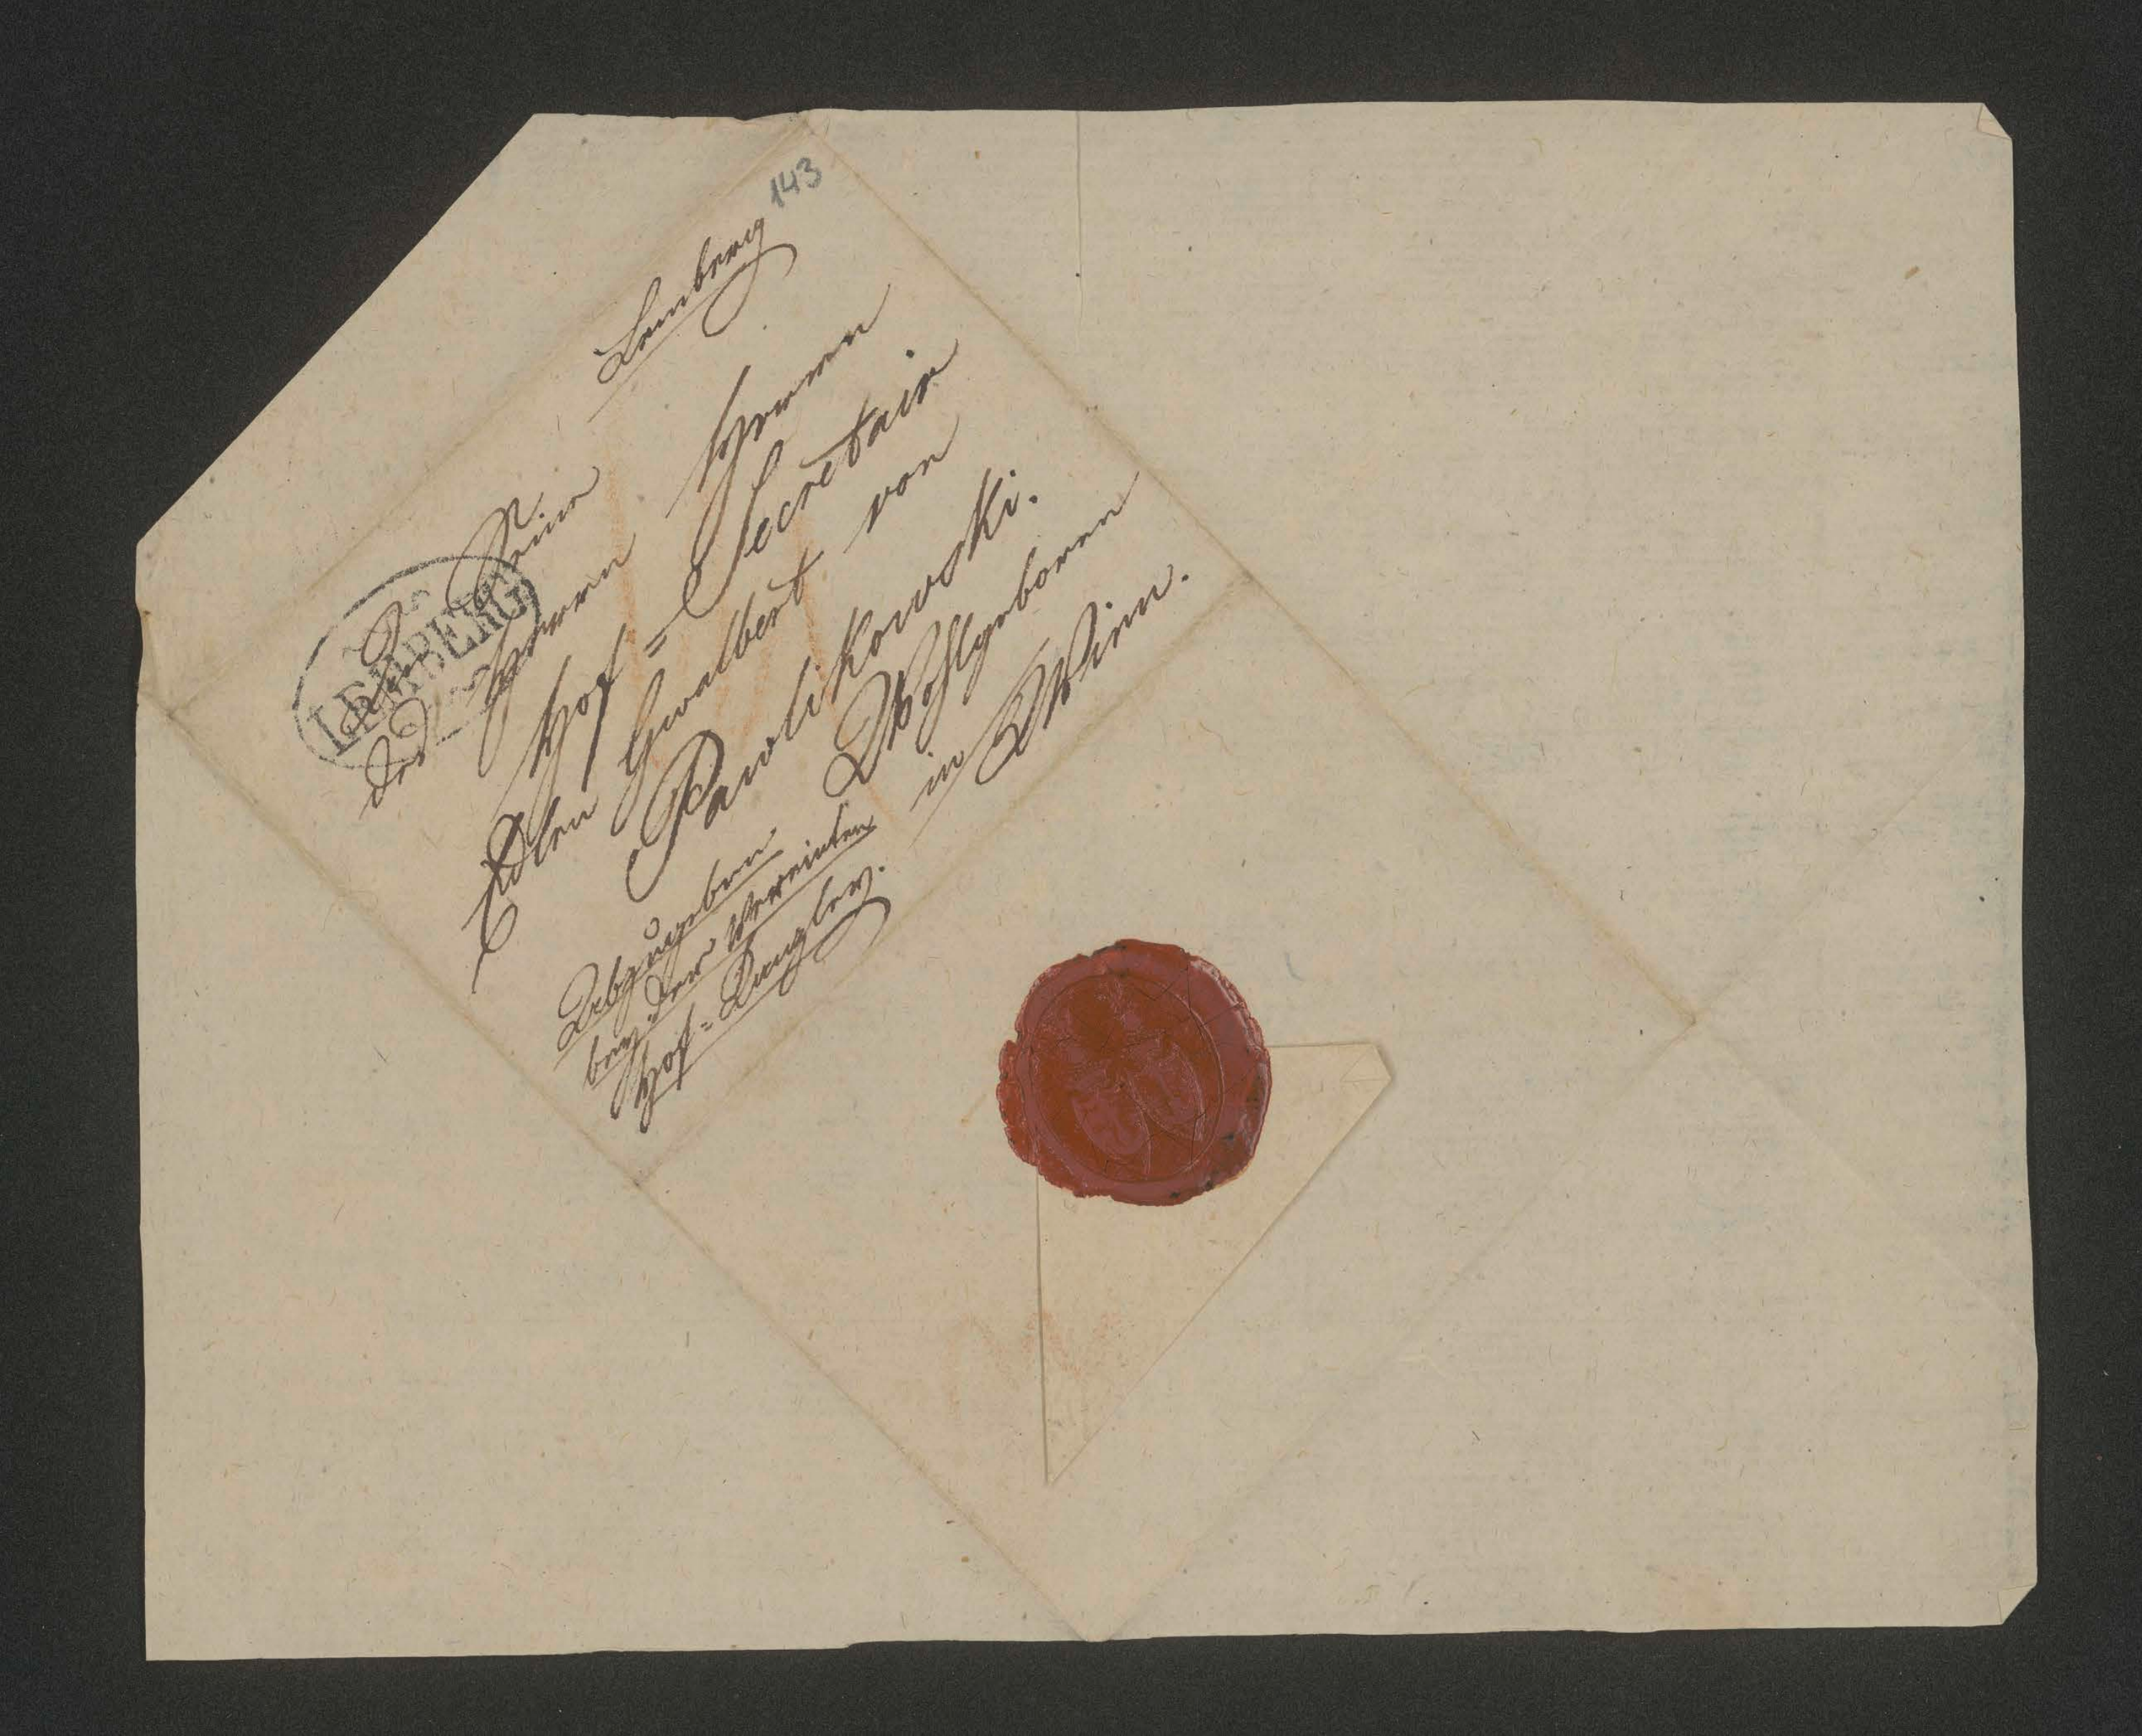 143
Lemberg
LEMBERG
An Seine
des Herrn Herrn
Hof=Secretair
Edlen Gwalbert von
Pawlikowski.
Wohlgeboren
in Wien.
Abzugeben
bey der Vereinten
Hof=Kanzley.